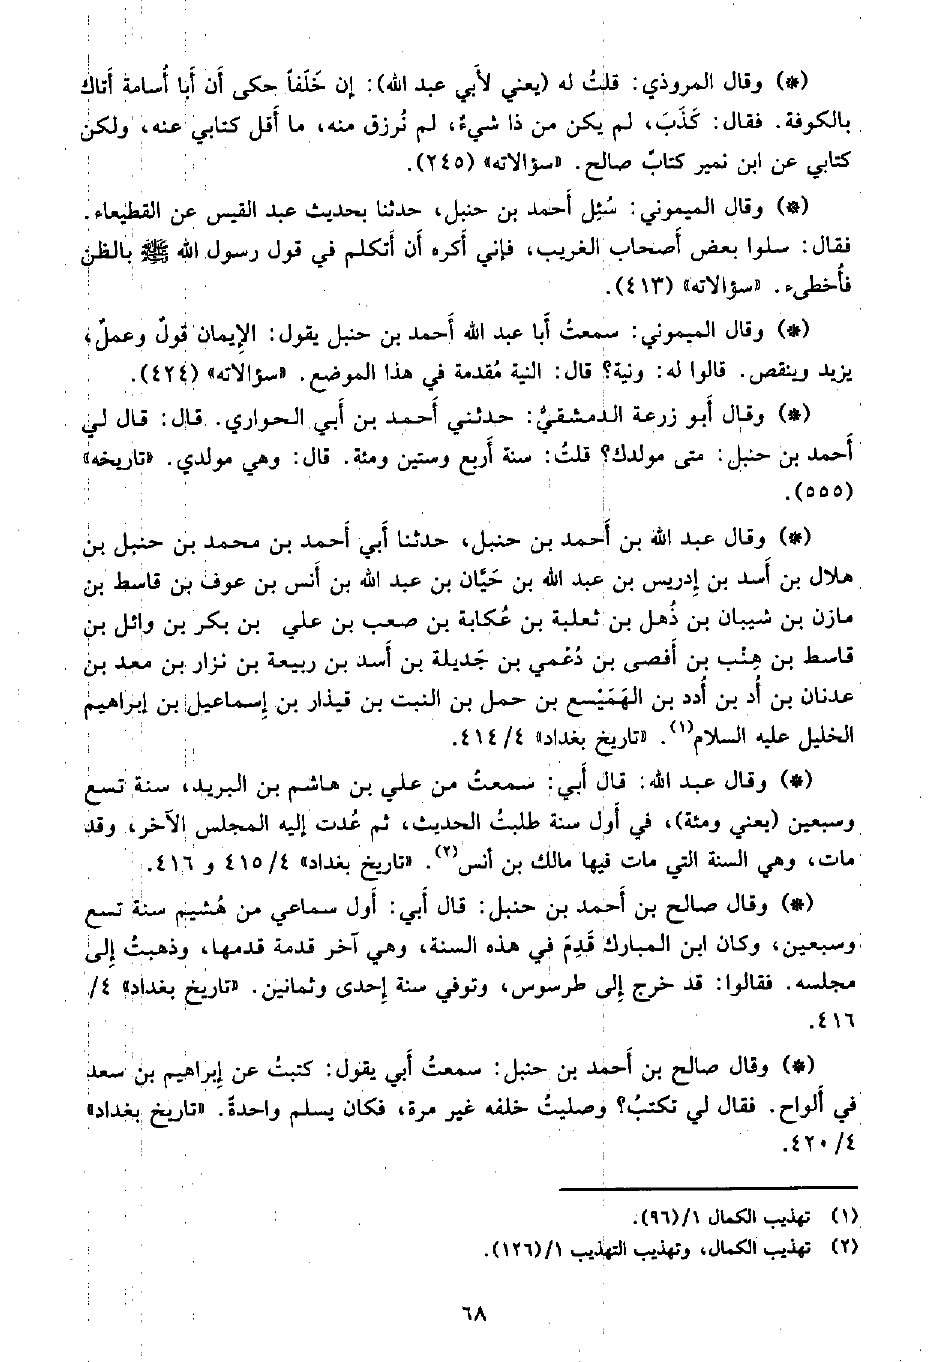 (*) وقال المروذي: قلتُ له (يعني لأَبي عبد الله): إن خَلَفاً حكى أن أَبا أُسامة أَتاك
بالكوفة. فقال: كَذَبَ، لم يكن من ذا شيءٌ، لم نُرزق منه، ما أَقل كتابي عنه، ولكن
كتابي عن ابن نمير كتابٌ صالح. «سؤالاته» (٢٤٥).
(*) وقال الميموني: سُئِل أَحمد بن حنبل، حدثنا بحديث عبد القيس عن القطيعاء.
فقال: سلوا بعض أَصحاب الغريب، فإني أَكره أن أَتكلم في قول رسول الله ﷺ بالظن
فأُخطىء. «سؤالاته» (٤١٣).
(*) وقال الميموني: سمعتُ أَبا عبد الله أَحمد بن حنبل يقول: الإِيمان قولٌ وعملٌ،
يزيد وينقص. قالوا له: ونية؟ قال: النية مُقدمة في هذا الموضع. «سؤالاته» (٤٢٤).
(*) وقال أَبو زرعة الدمشقيُّ: حدثني أَحمد بن أَبي الحواري. قال: قال لي
أَحمد بن حنبل: متى مولدك؟ قلتُ: سنة أَربع وستين ومئة. قال: وهي مولدي. «تاريخه»
(٥٥٥).
(*) وقال عبد الله بن أَحمد بن حنبل، حدثنا أَبي أَحمد بن محمد بن حنبل بن
هلال بن أَسد بن إِدريس بن عبد الله بن حَيَّان بن عبد الله بن أَنس بن عوف بن قاسط بن
مازن بن شيبان بن ذُهل بن ثعلبة بن عُكابة بن صعب بن علي بن بكر بن وائل بن
قاسط بن هِنْب بن أَفصى بن دُعْمي بن جَديلة بن أَسد بن ربيعة بن نزار بن معد بن
عدنان بن أُد بن أُدد بن الهَمَيْسع بن حمل بن النبت بن قيذار بن إِسماعيل بن إبراهيم
الخليل عليه السلام(١). «تاريخ بغداد» ٤/ ٤١٤.
(*) وقال عبد الله: قال أَبي: سمعتُ من علي بن هاشم بن البريد، سنة تسع
وسبعين (يعني ومئة)، في أَول سنة طلبتُ الحديث، ثم عُدت إليه المجلس الآخر، وقد
مات، وهي السنة التي مات فيها مالك بن أنس(٢). «تاريخ بغداد» ٤/ ٤١٥ و ٤١٦.
(*) وقال صالح بن أَحمد بن حنبل: قال أَبي: أول سماعي من هُشيم سنة تسع
وسبعين، وكان ابن المبارك قَدِمَ في هذه السنة، وهي آخر قدمة قدمها، وذهبتُ إلى
مجلسه. فقالوا: قد خرج إِلى طرسوس، وتوفي سنة إِحدى وثمانين. «تاريخ بغداد» ٤/
٤١٦.
(*) وقال صالح بن أَحمد بن حنبل: سمعتُ أَبي يقول: كتبتُ عن إِبراهيم بن سعد
في أَلواح. فقال لي تكتبُ؟ وصليتُ خلفه غير مرة، فكان يسلم واحدةً. «تاريخ بغداد»
٤/ ٤٢٠.
(١) تهذيب الكمال ١/ (٩٦).
(٢) تهذيب الكمال، وتهذيب التهذيب ١/ (١٢٦).
٦٨